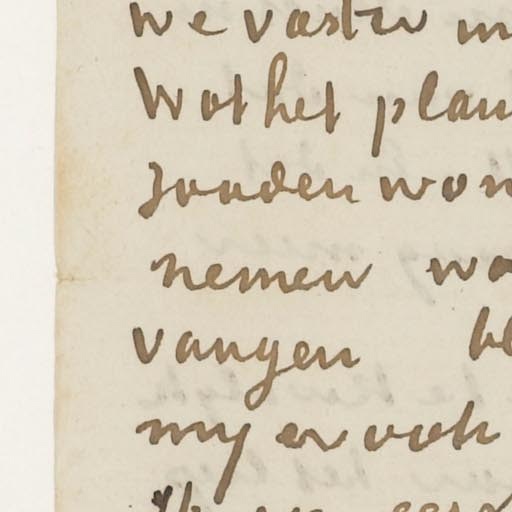 we vaster in
Wat het plan
zouden wor
nemen wa
vangen be
my er ook